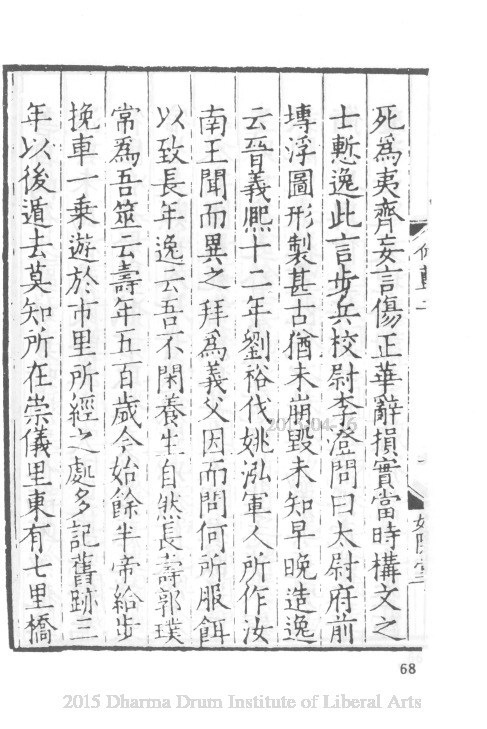 死爲夷齊妄言傷正華辭損實當時構文之
士慙逸此言步兵校尉李澄問曰太尉府前
塼浮圖形製甚古猶未崩毀未知早晚造逸
云晉義熙十二年劉裕伐姚泓軍人所作汝
南王聞而異之拜爲義父因而問何所服餌
以致長年逸云吾不閑養生自然長壽郭璞
常爲吾筮云壽年五百歲今始餘半帝給步
挽車一乗遊於市里所經之處多記舊跡三
年以後遁去莫知所在崇儀里東有七里橋
68
2015 Dharma Drum Institute of Liberal Arts